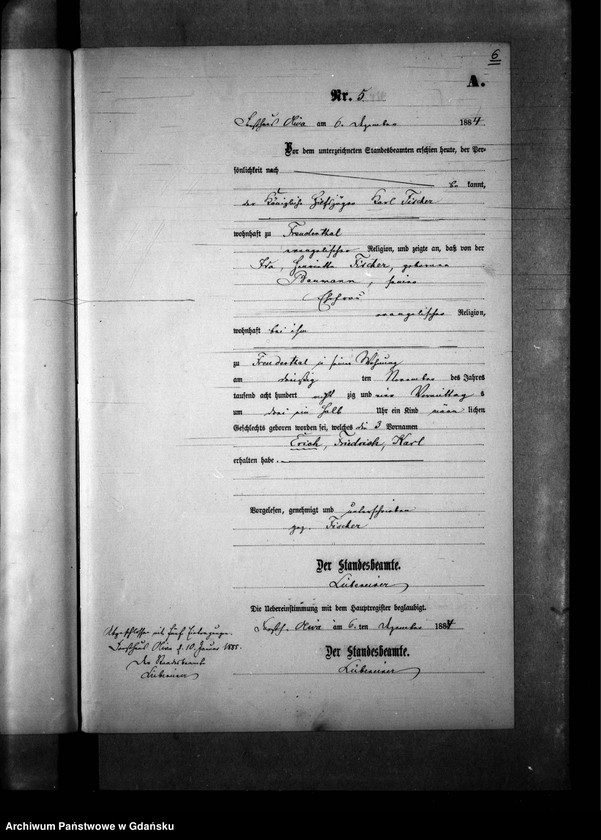 6
A.
Nr. 5
Forsthaus Oliva am 6. Dezember 1884
Vor dem unterzeichneten Standesbeamten erschien heute, der Per-
sönlichkeit nach
be kannt,
der Königliche Hilfsjäger Karl Fischer
wohnhaft zu Freudenthal
evangelischer Religion, und zeigte an, daß von der
Ida, Henriette Fischer, geborene
Baumann, seiner
Ehefrau
evangelischer Religion,
wohnhaft bei ihm
zu Freudenthal in seiner Wohnung
am dreißig ten November des Jahres
tausend acht hundert acht zig und vier Vormittag s
um drei ein halb Uhr ein Kind männ lichen
Geschlechts geboren worden sei, welches die 3 Vornamen
Erich, Friedrich, Karl
erhalten habe.
Vorgelesen, genehmigt und unterschrieben
gez. Fischer
Der Standesbeamte.
Die Uebereinstimmung mit dem Hauptregister beglaubigt.
Forsth. Oliva am 6. ten Dezember 1884
Der Standesbeamte.
Abgeschlossen mit fünf Eintragungen.
Forsthaus Oliva d. 10. Januar 1885.
Der Standesbeamte
Archiwum Państwowe w Gdańsku